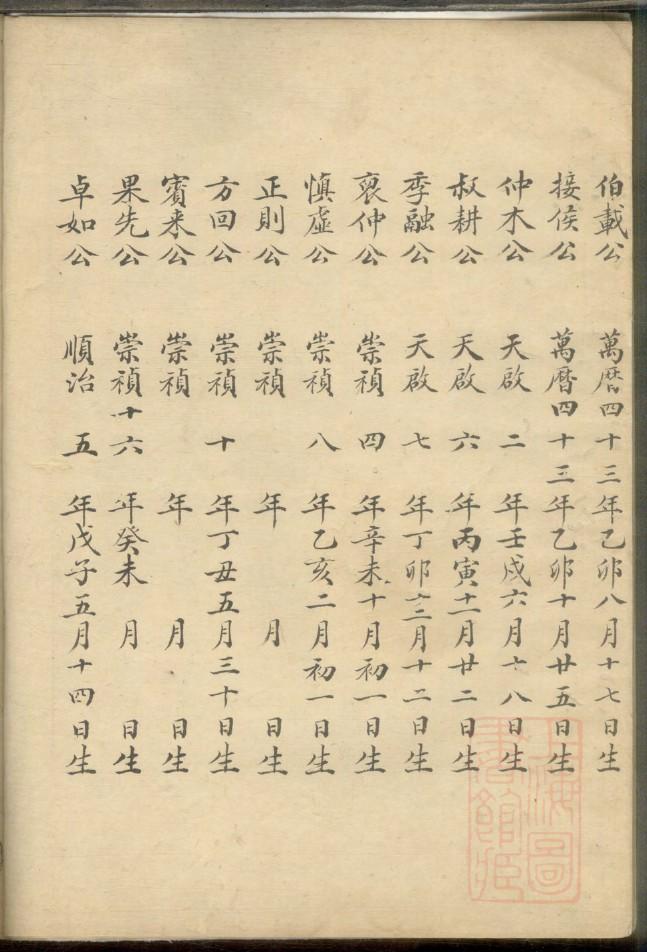 伯載公 萬曆四十三年乙卯八月十七日生
接侯公 萬曆四十三年乙卯十月廿五日生
仲木公 天啟二年壬戌六月十八日生
叔耕公 天啟六年丙寅十一月廿二日生
季融公 天啟七年丁卯十二月十二日生
裒仲公 崇禎四年辛未十月初一日生
慎虛公 崇禎八年乙亥二月初一日生
正則公 崇禎 年 月 日生
方回公 崇禎十年丁丑五月三十日生
賓來公 崇禎 年 月 日生
果先公 崇禎十六年癸未 月 日生
卓如公 順治五年戊子五月十四日生
上海圖
書館藏